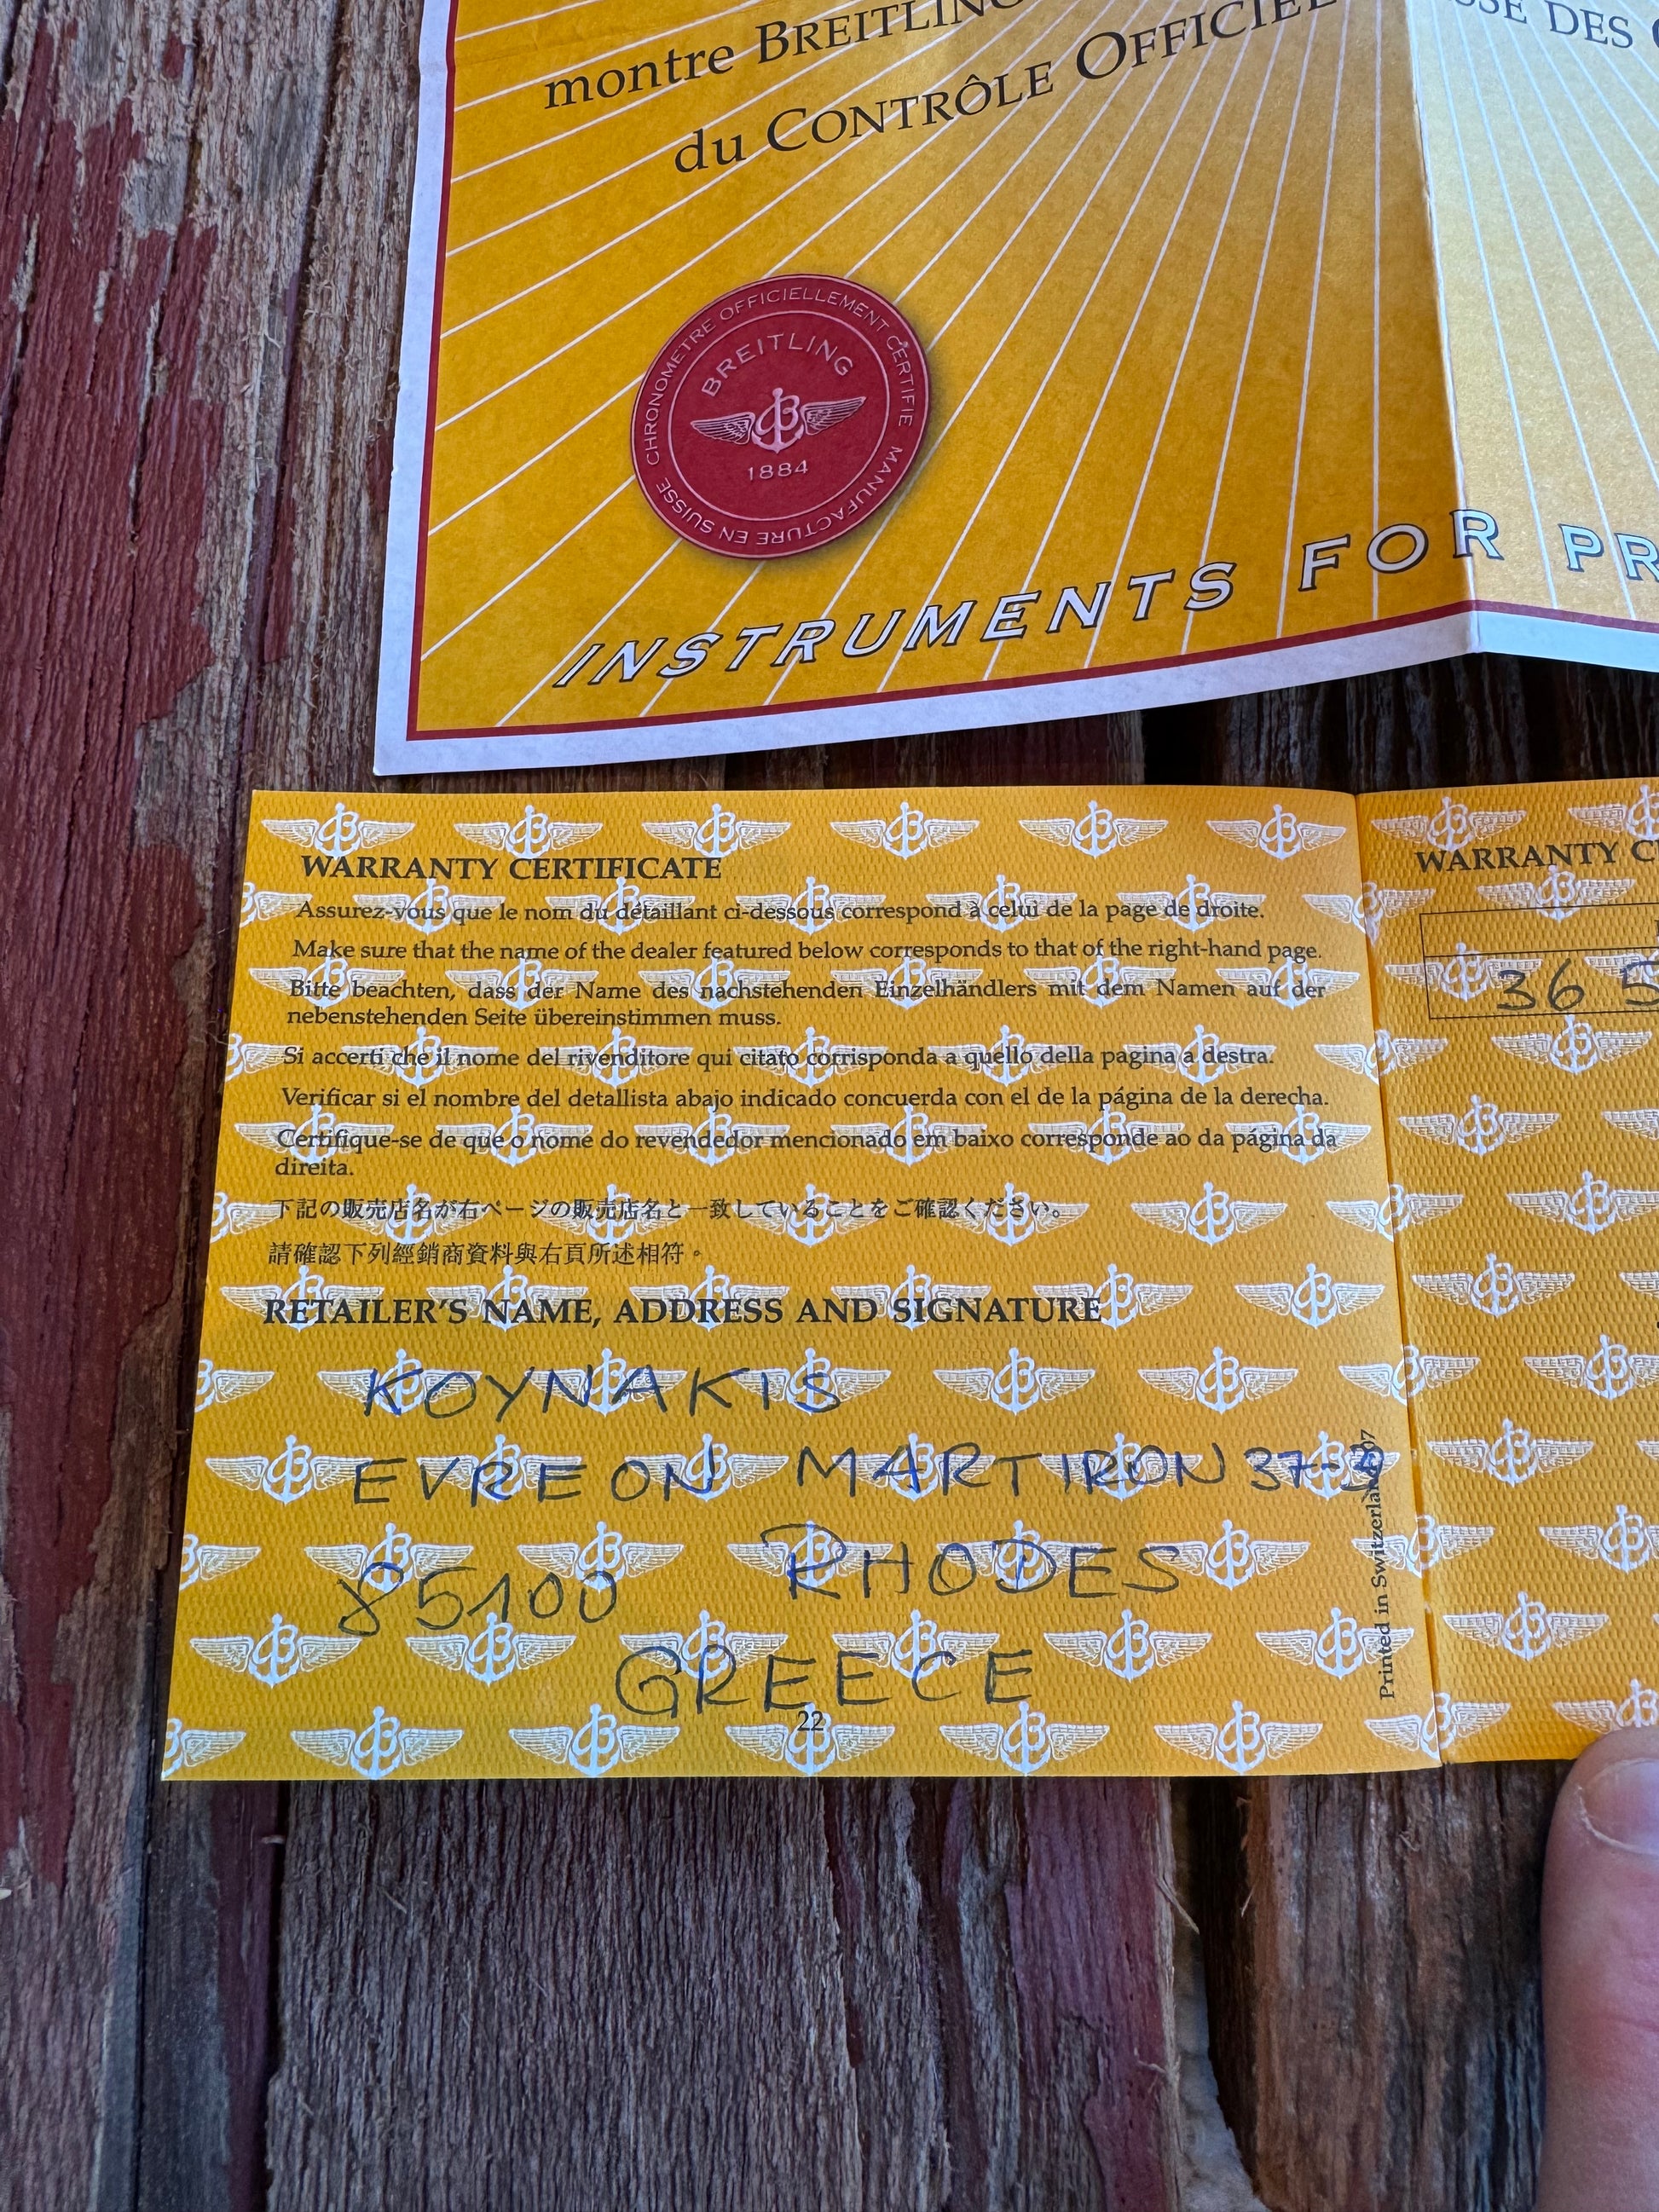 montre BREITLING
du CONTRÔLE OFFICIEL
SSE DES
CHRONOMETRE OFFICIELLEMENT CERTIFIE MANUFACTURE EN SUISSE
BREITLING
1884
INSTRUMENTS FOR PR
WARRANTY CERTIFICATE
Assurez-vous que le nom du détaillant ci-dessous correspond à celui de la page de droite.
Make sure that the name of the dealer featured below corresponds to that of the right-hand page.
Bitte beachten, dass der Name des nachstehenden Einzelhändlers mit dem Namen auf der
nebenstehenden Seite übereinstimmen muss.
Si accerti che il nome del rivenditore qui citato corrisponda a quello della pagina a destra.
Verificar si el nombre del detallista abajo indicado concuerda con el de la página de la derecha.
Certifique-se de que o nome do revendedor mencionado em baixo corresponde ao da página da
direita.
下記の販売店名が右ページの販売店名と一致していることをご確認ください。
請確認下列經銷商資料與右頁所述相符。
RETAILER'S NAME, ADDRESS AND SIGNATURE
KOYNAKIS
EVREON MARTIRON 37-
85100 RHODES
GREECE
22
Printed in Switzerland
WARRANTY C
36 5